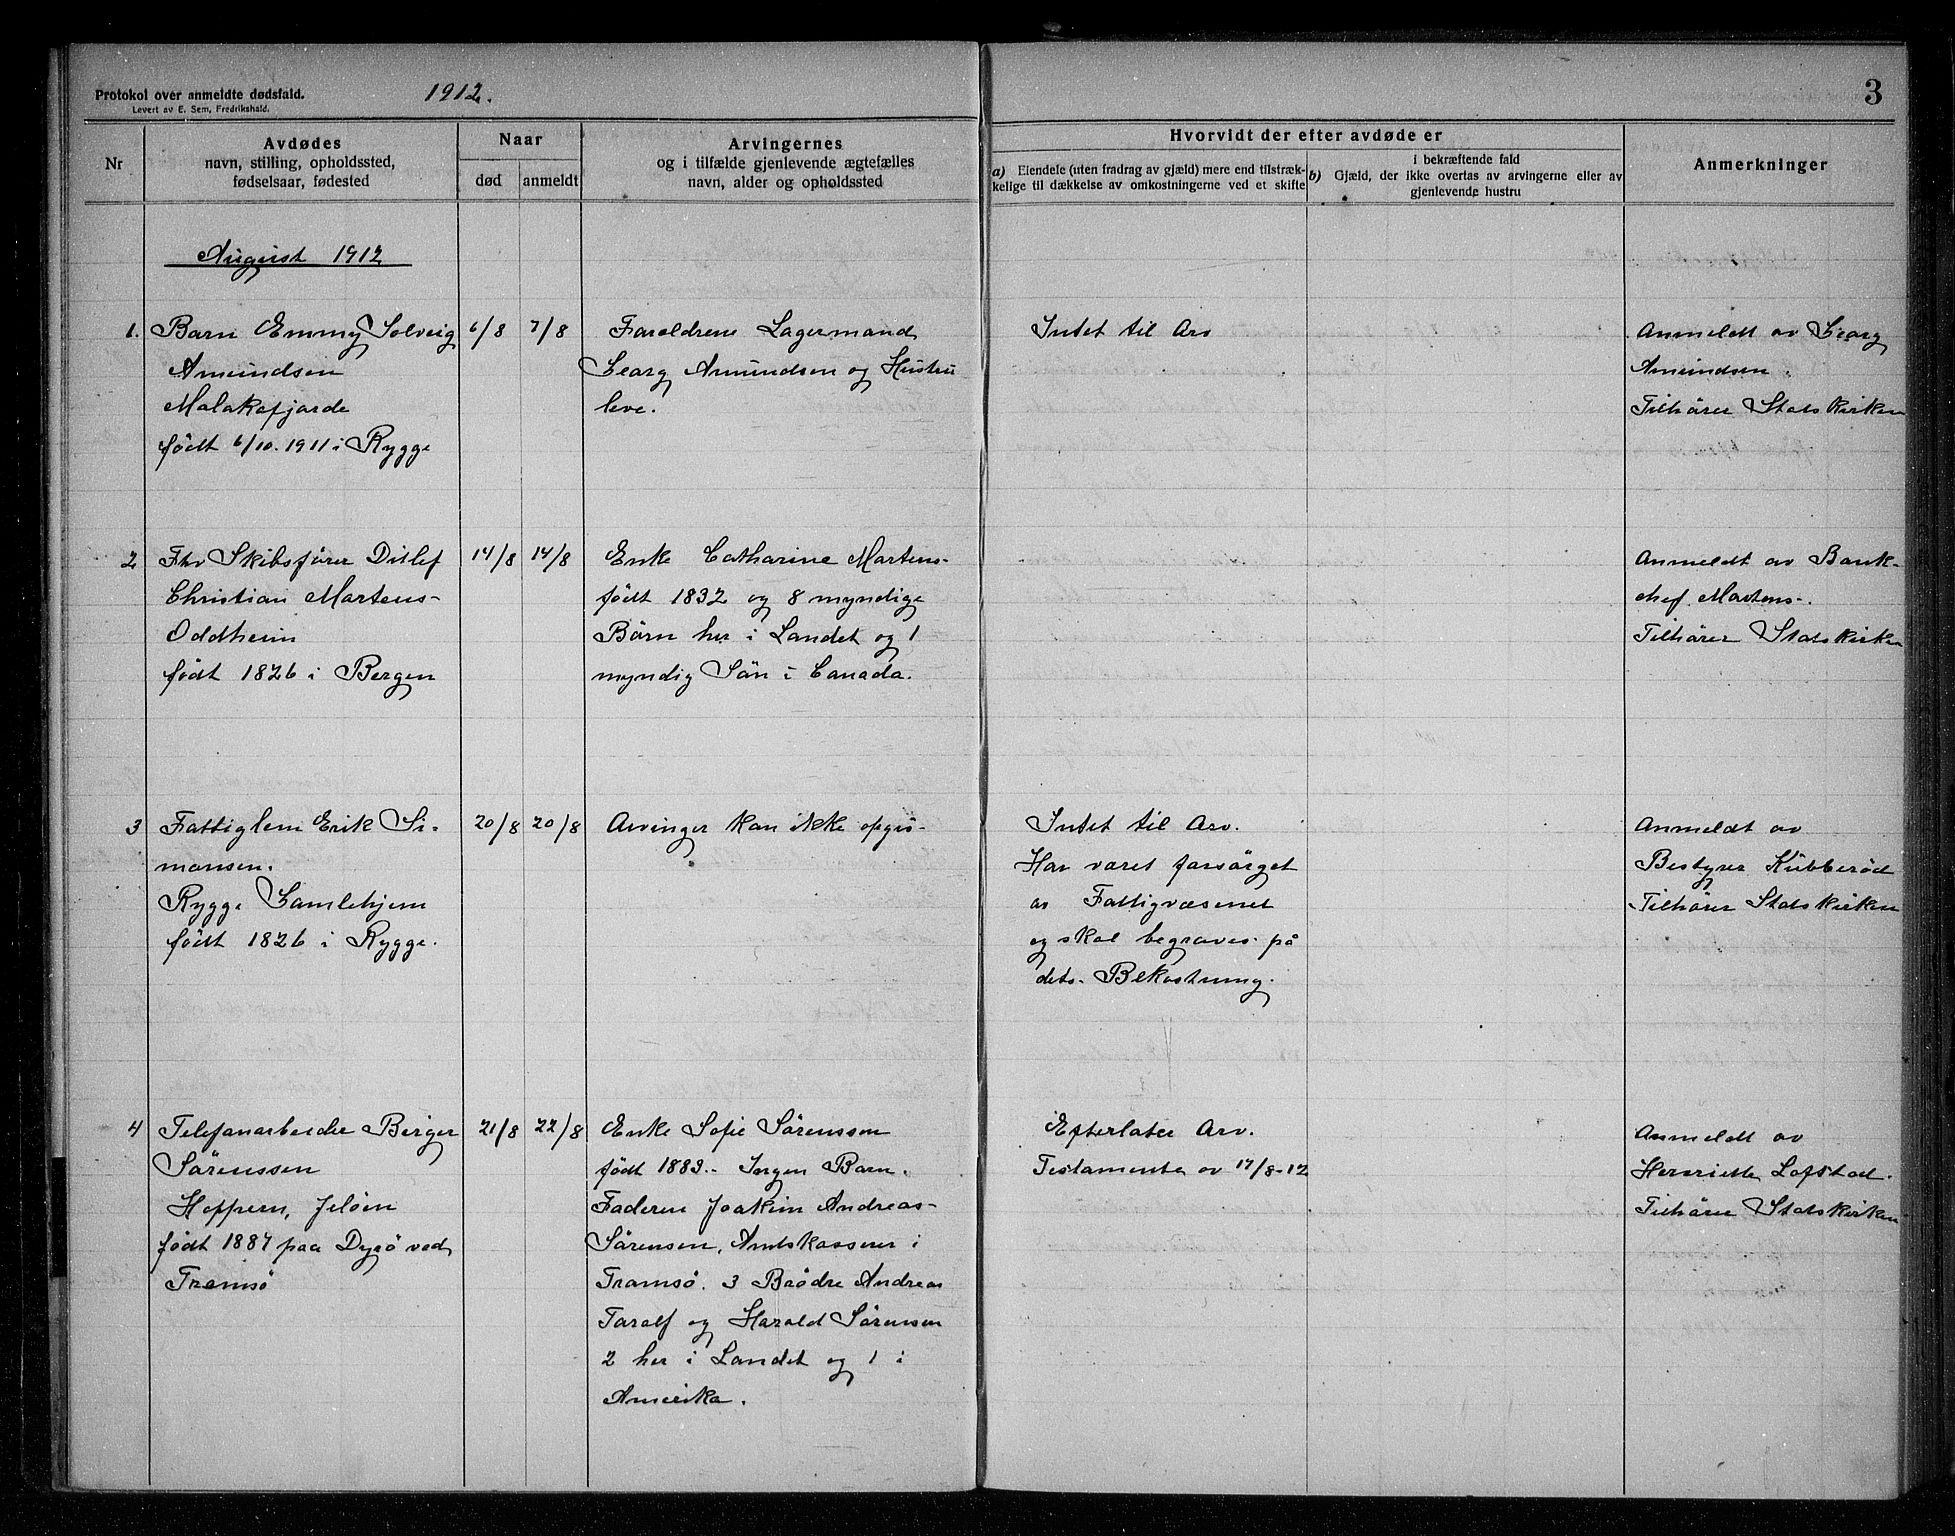 Protokol over anmeldte dødsfald.
Levert av E. Sem, Fredrikshald.
1912.
3
Nr
Avdødes
navn, stilling, opholdssted,
fødselsaar, fødested
Naar
død
anmeldt
Arvingernes
og i tilfælde gjenlevende ægtefælles
navn, alder og opholdssted
Hvorvidt der efter avdøde er
a) Eiendele (uten fradrag av gjæld) mere end tilstræk-
kelige til dækkelse av omkostningerne ved et skifte
i bekræftende fald
b) Gjæld, der ikke overtas av arvingerne eller av
gjenlevende hustru
Anmerkninger
August 1912
1.
Barn Emmy Solveig
Amundsen
Malakofjorde
født 6/10. 1911 i Rygge
6/8
7/8
Foreldrene Lagermand
Georg Amundsen og Hustru
leve.
Intet til Arv
Anmeldt av Georg
Amundsen.
Tilhører Statskirken
2
Fhv Skibsfører Ditlef
Christian Martens-
Oddheim
født 1826 i Bergen
14/8
14/8
Enke Catharine Martens-
født 1832 og 8 myndige
Børn her i Landet og 1
myndig Søn i Canada.
Anmeldt av Bank-
chef Martens-.
Tilhører Statskirken
3
Fattiglem Erik Si-
monsen.
Rygge Gamlehjem
født 1826 i Rygge.
20/8
20/8
Arvinger kan ikke opgis-
Intet til Arv.
Har været forsørget
av Fattigvæsenet
og skal begraves på
dets- Bekostning.
Anmeldt av
Bestyrer Kubberød
Tilhører Statskirken
4
Telefonarbeider Berger
Sørenssen
Hoppern, Jeløen
født 1887 paa Dyrø ved
Tromsø
21/8
22/8
Enke Sofie Sørenssen
født 1883.- Ingen Barn.
Faderen Joakim Andreas-
Sørensen, Amtskasserer i
Tromsø. 3 Brødre Andreas
Toralf og Harald Sørensen
2 her i Landet og 1 i
Amerika.
Efterlater Arv.
Testamente av 17/8-12
Anmeldt av
Henriette Lofstad.
Tilhører Statskirken